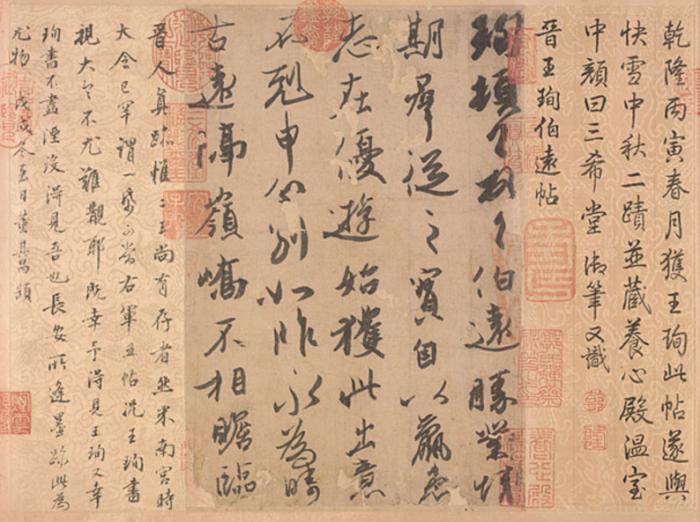 乾隆丙寅春月獲王珣此帖遂與
快雪中秋二蹟並藏養心殿溫室
中顏曰三希堂御筆又識
晉王珣伯遠帖
珣頓首頓首伯遠勝業情
期羣從之寶自以羸患
志在優遊始獲此出意
不剋申分別如昨永為疇
古遠隔嶺嶠不相瞻臨
晉人真跡惟二王尚有存者然米南宮時
大令已罕謂一紙可當右軍五帖況王珣書
視大令不尤難覯耶既幸予得見王珣又幸
珣書不盡湮沒得見吾也長安所逢墨跡此為
尤物戊戌冬至日董其昌題